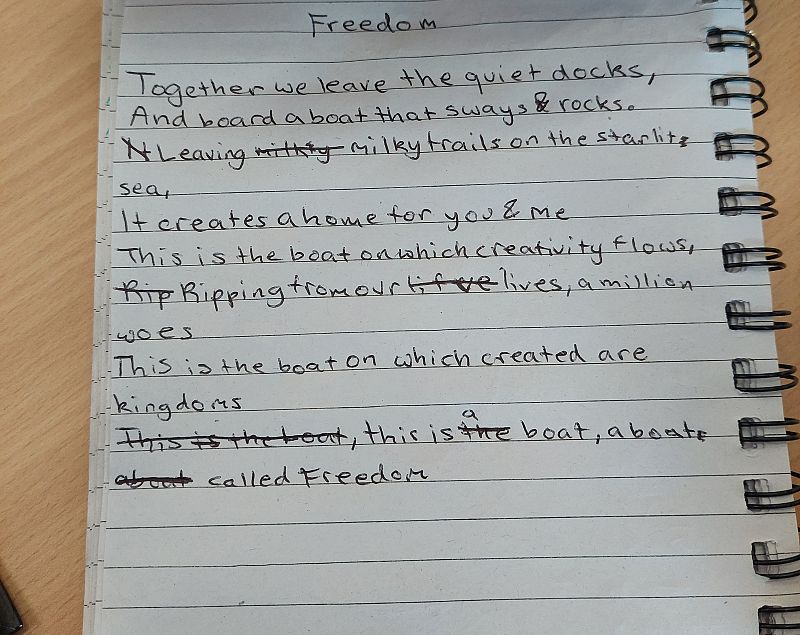 Freedom
Together we leave the quiet docks,
And board a boat that sways & rocks.
Leaving milky trails on the starlit
sea,
It creates a home for you & me
This is the boat on which creativity flows,
Rip Ripping from our lives, a million
woes
This is the boat on which created are
kingdoms
This is the boat, this is the a boat, a boat
about called Freedom